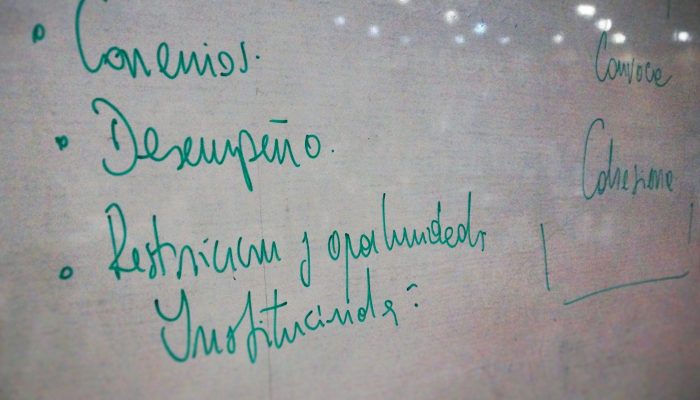 • Convenios.
• Desempeño.
• Restriccion y oportunidades
Institucionales
Convoca
Cohesiona